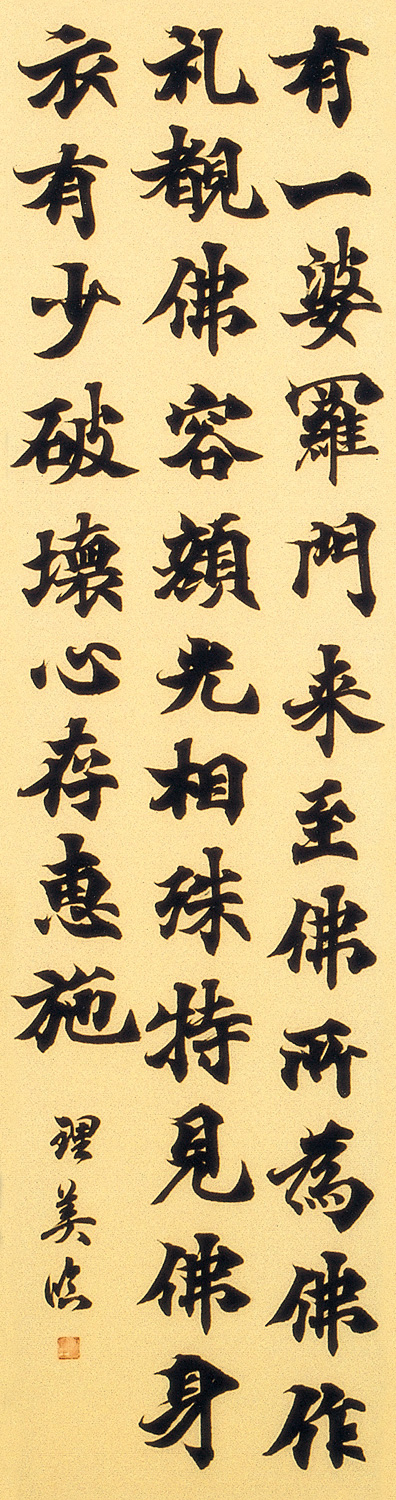 有一婆羅門来至佛所為佛作
礼觀佛容顔光相殊特見佛身
衣有少破壞心存惠施
理美臨